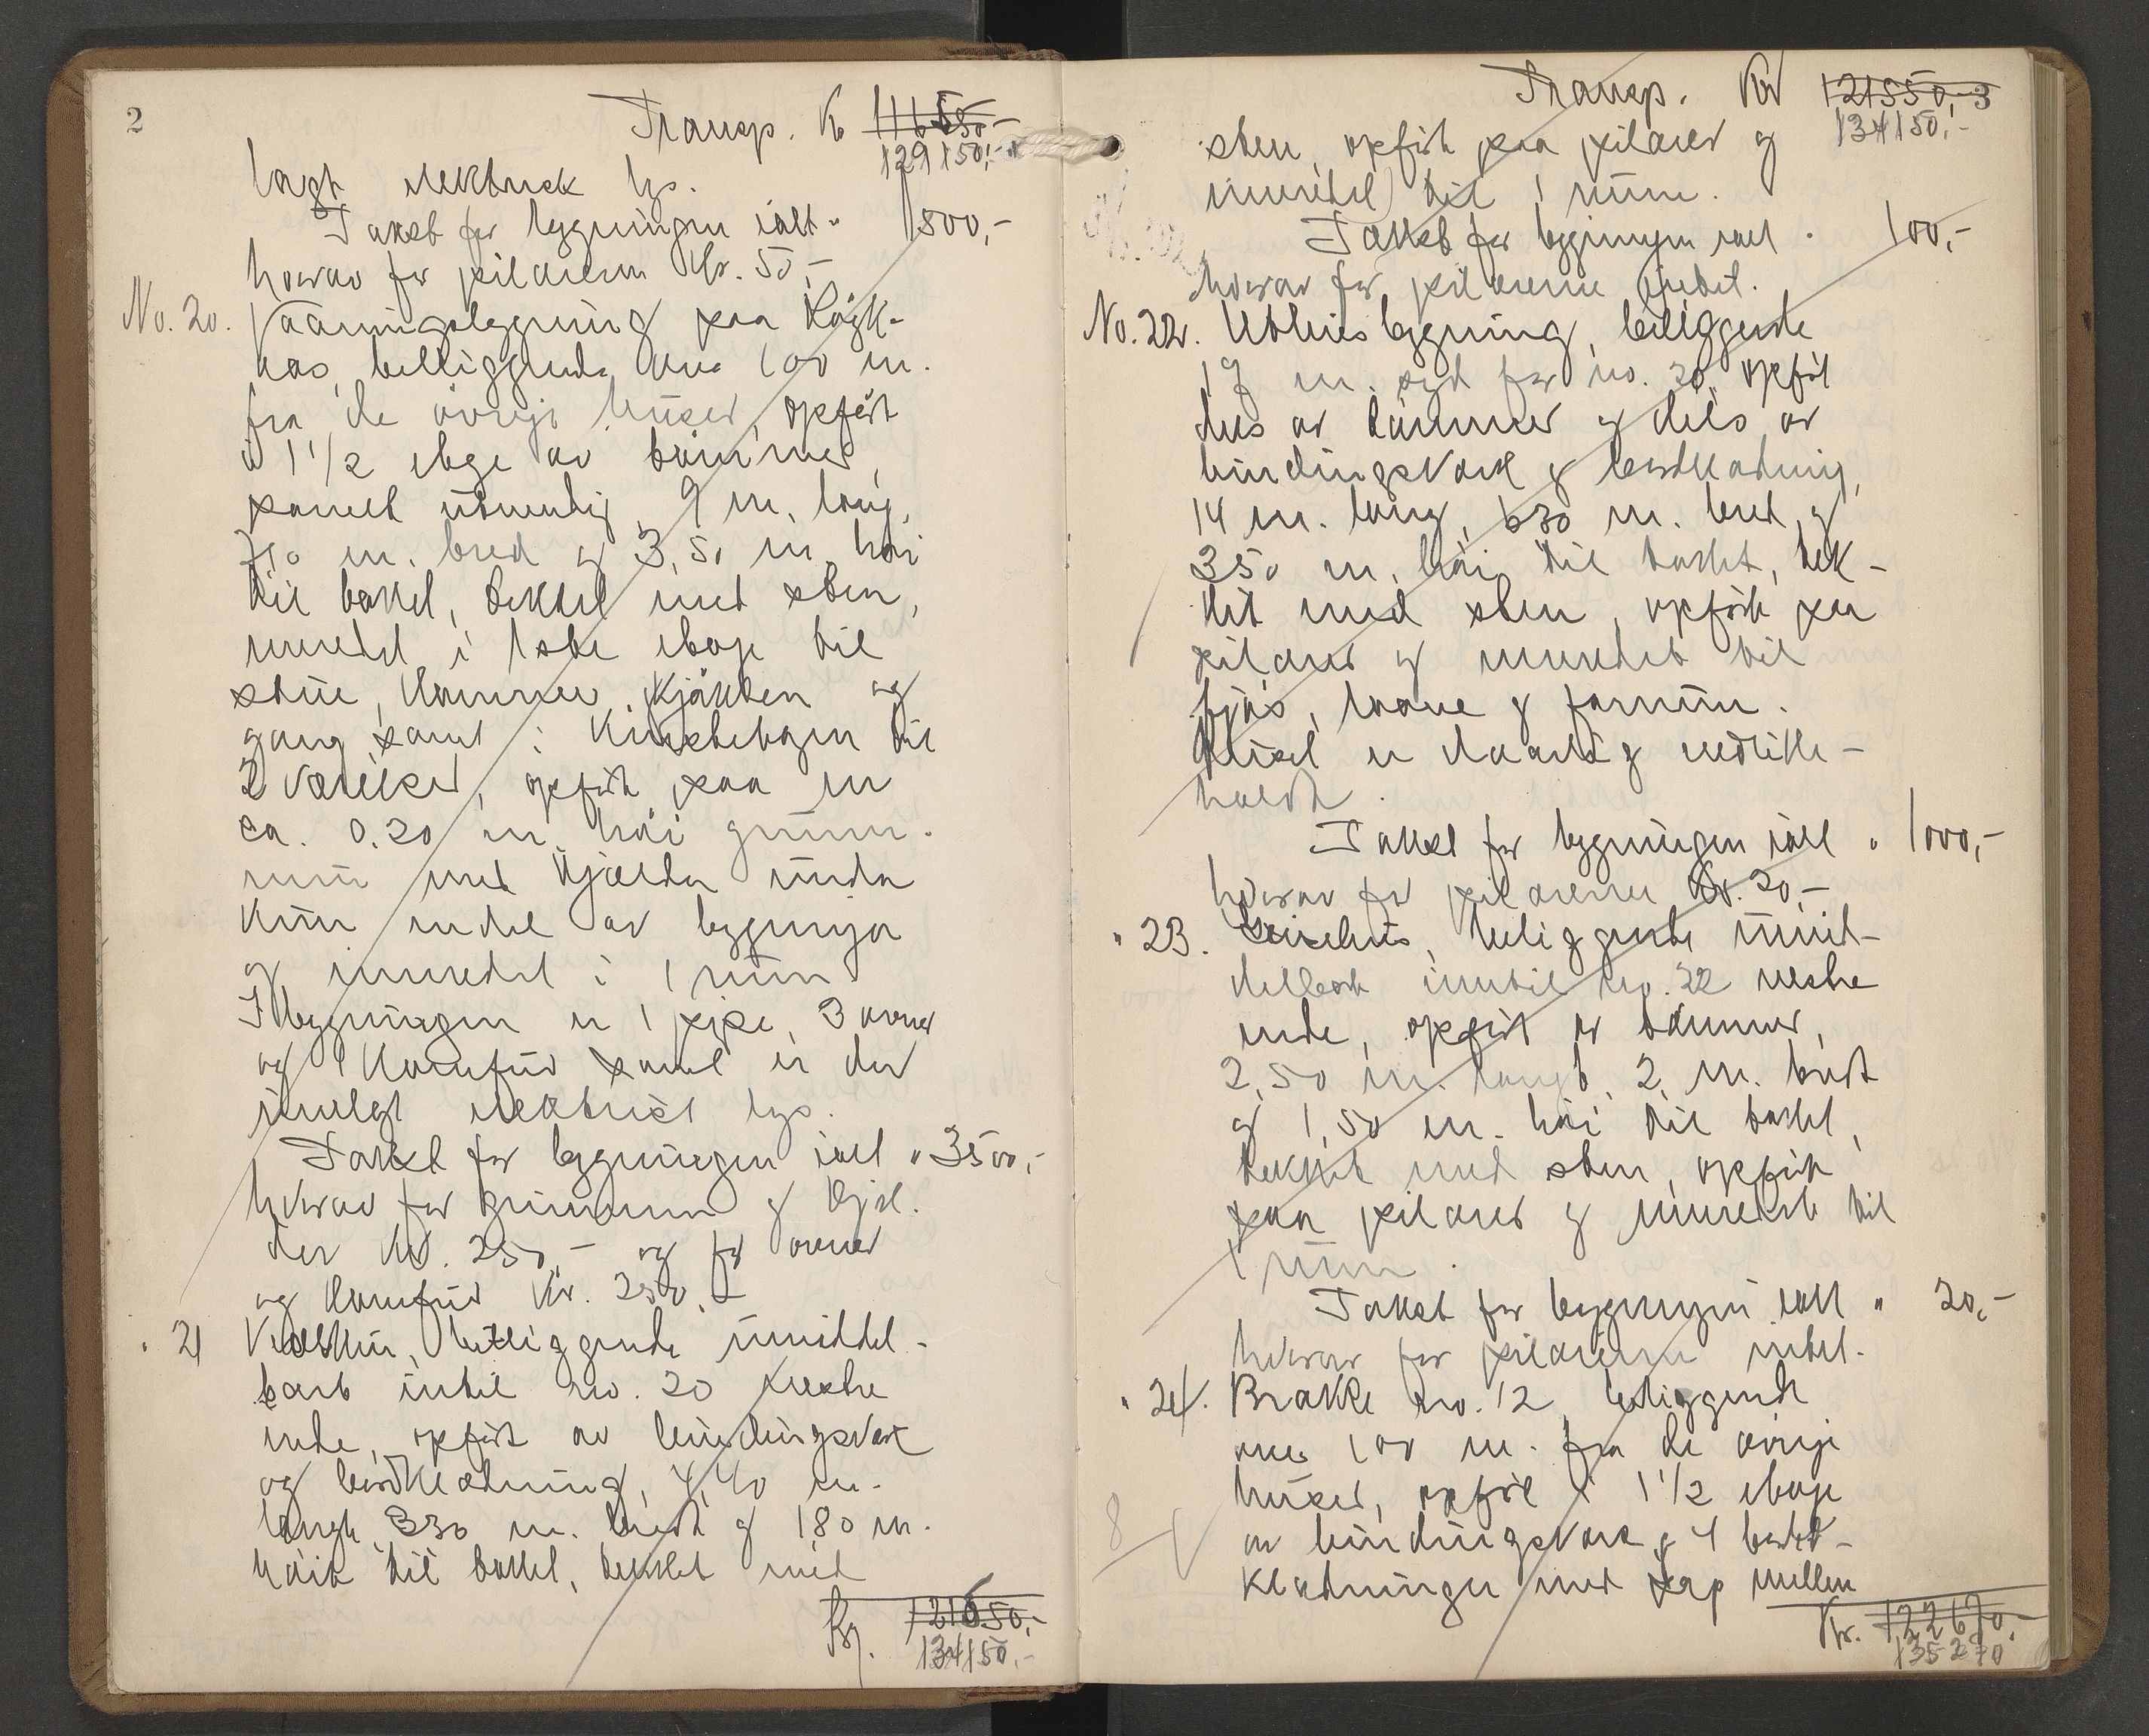 2
Transp. Kr 116650,-
129150,-
lagt elektrisk lys.
Takst for bygningen ialt " 1500,-
hvorav for pilarerne Kr. 50,-
No. 20. Vaaningsbygning paa
aas, beliggende ca. 100 m.
fra de øvrige huser, opført
i 1 1/2 etage av tømmer,
panelt utvendig, 9 m. lang,
7,10 m. bred og 3,50 m. høi
til taket, tækket med sten,
inredet i 1ste etage til
stue, kammer, kjøkken og
gang samt i kvistetagen til
2 værelser, opført paa en
ca. 0.20 m. høi grunn-
mur med kjælder under
kun endel av bygningen
og innredet i 1 rum
I bygningen er 1 pipe, 3 ovner
og 1 komfur samt er der
innlagt elektrisk lys.
Takst for bygningen ialt " 3500,-
hvorav for grunmuren og kjæl-
der kr. 250,- og for ovner
og komfur kr. 250,-
" 21 Vedskur, beliggende umiddel-
bart inntil no. 20 vestre
ende, opført av bindingsverk
og bordklædning, 4,40 m.
langt 3,30 m. bredt og 1.80 m.
høit til taket, tækket med
Kr. 121650,-
134150,-
3
Transp. Kr 121550,-
134150,-
sten, opført paa pilarer og
innredet til 1 rum.
Takst for bygningen ialt " 100,-
hvorav for pilarerne intet.
No. 22. Uthusbygning, beliggende
19 m. syd for no. 20, opført
dels av tømmer og dels av
bindingsverk og bordklædning,
14 m. lang, 6.30 m. bred og
3.50 m. høi til taket, tæk-
ket med sten, opført paa
pilarer og innredet til
fjøs, laave og forrum.
Huset er daarlig vedlike-
holdt.
Takst for bygningen ialt " 1000,-
hvorav for pilarerne Kr. 20,-
" 23. beliggende umid-
delbart inntil no. 22 vestre
ende, opført av tømmer,
2,50 m. langt, 2 m. bredt
og 1,50 m. høi til taket,
tækket med sten, opført
paa pilarer og innredet til
1 rum.
Takst for bygningen ialt " 20,-
hvorav for pilarerne intet.
" 24. Brakke no. 12, beliggende
ca. 100 m. fra de øvrige
huser, opført i 1 1/2 etage
av bindingsverk og 4 bord-
klædninger med pap mellem
Kr. 122670,-
135270